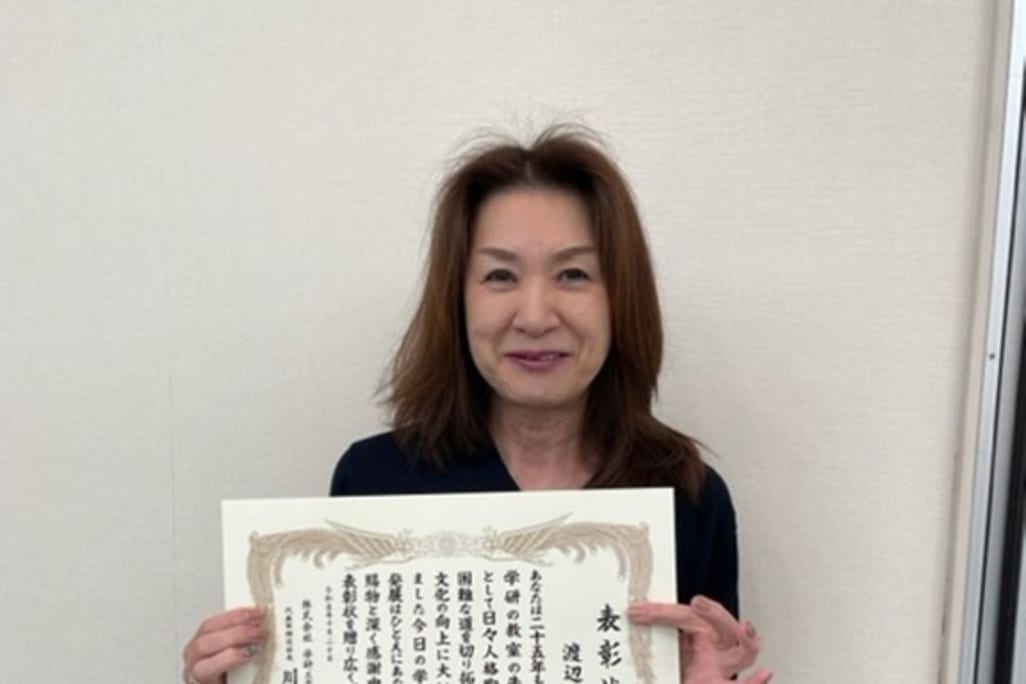 表彰状
渡辺
あなたは二十五年も
学研の教室の先
として日々人格
困難な道を切り拓
文化の向上に大い
ました今日の学
発展はひとえにあな
賜物と深く感謝
表彰状を贈り広く
株式会社 学研
川